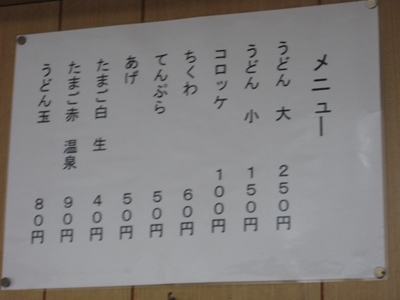 メニュー
うどん　大　250円
うどん　小　150円
コロッケ　100円
ちくわ　60円
てんぷら　50円
あげ　50円
たまご白　生　40円
たまご赤　温泉　90円
うどん玉　80円